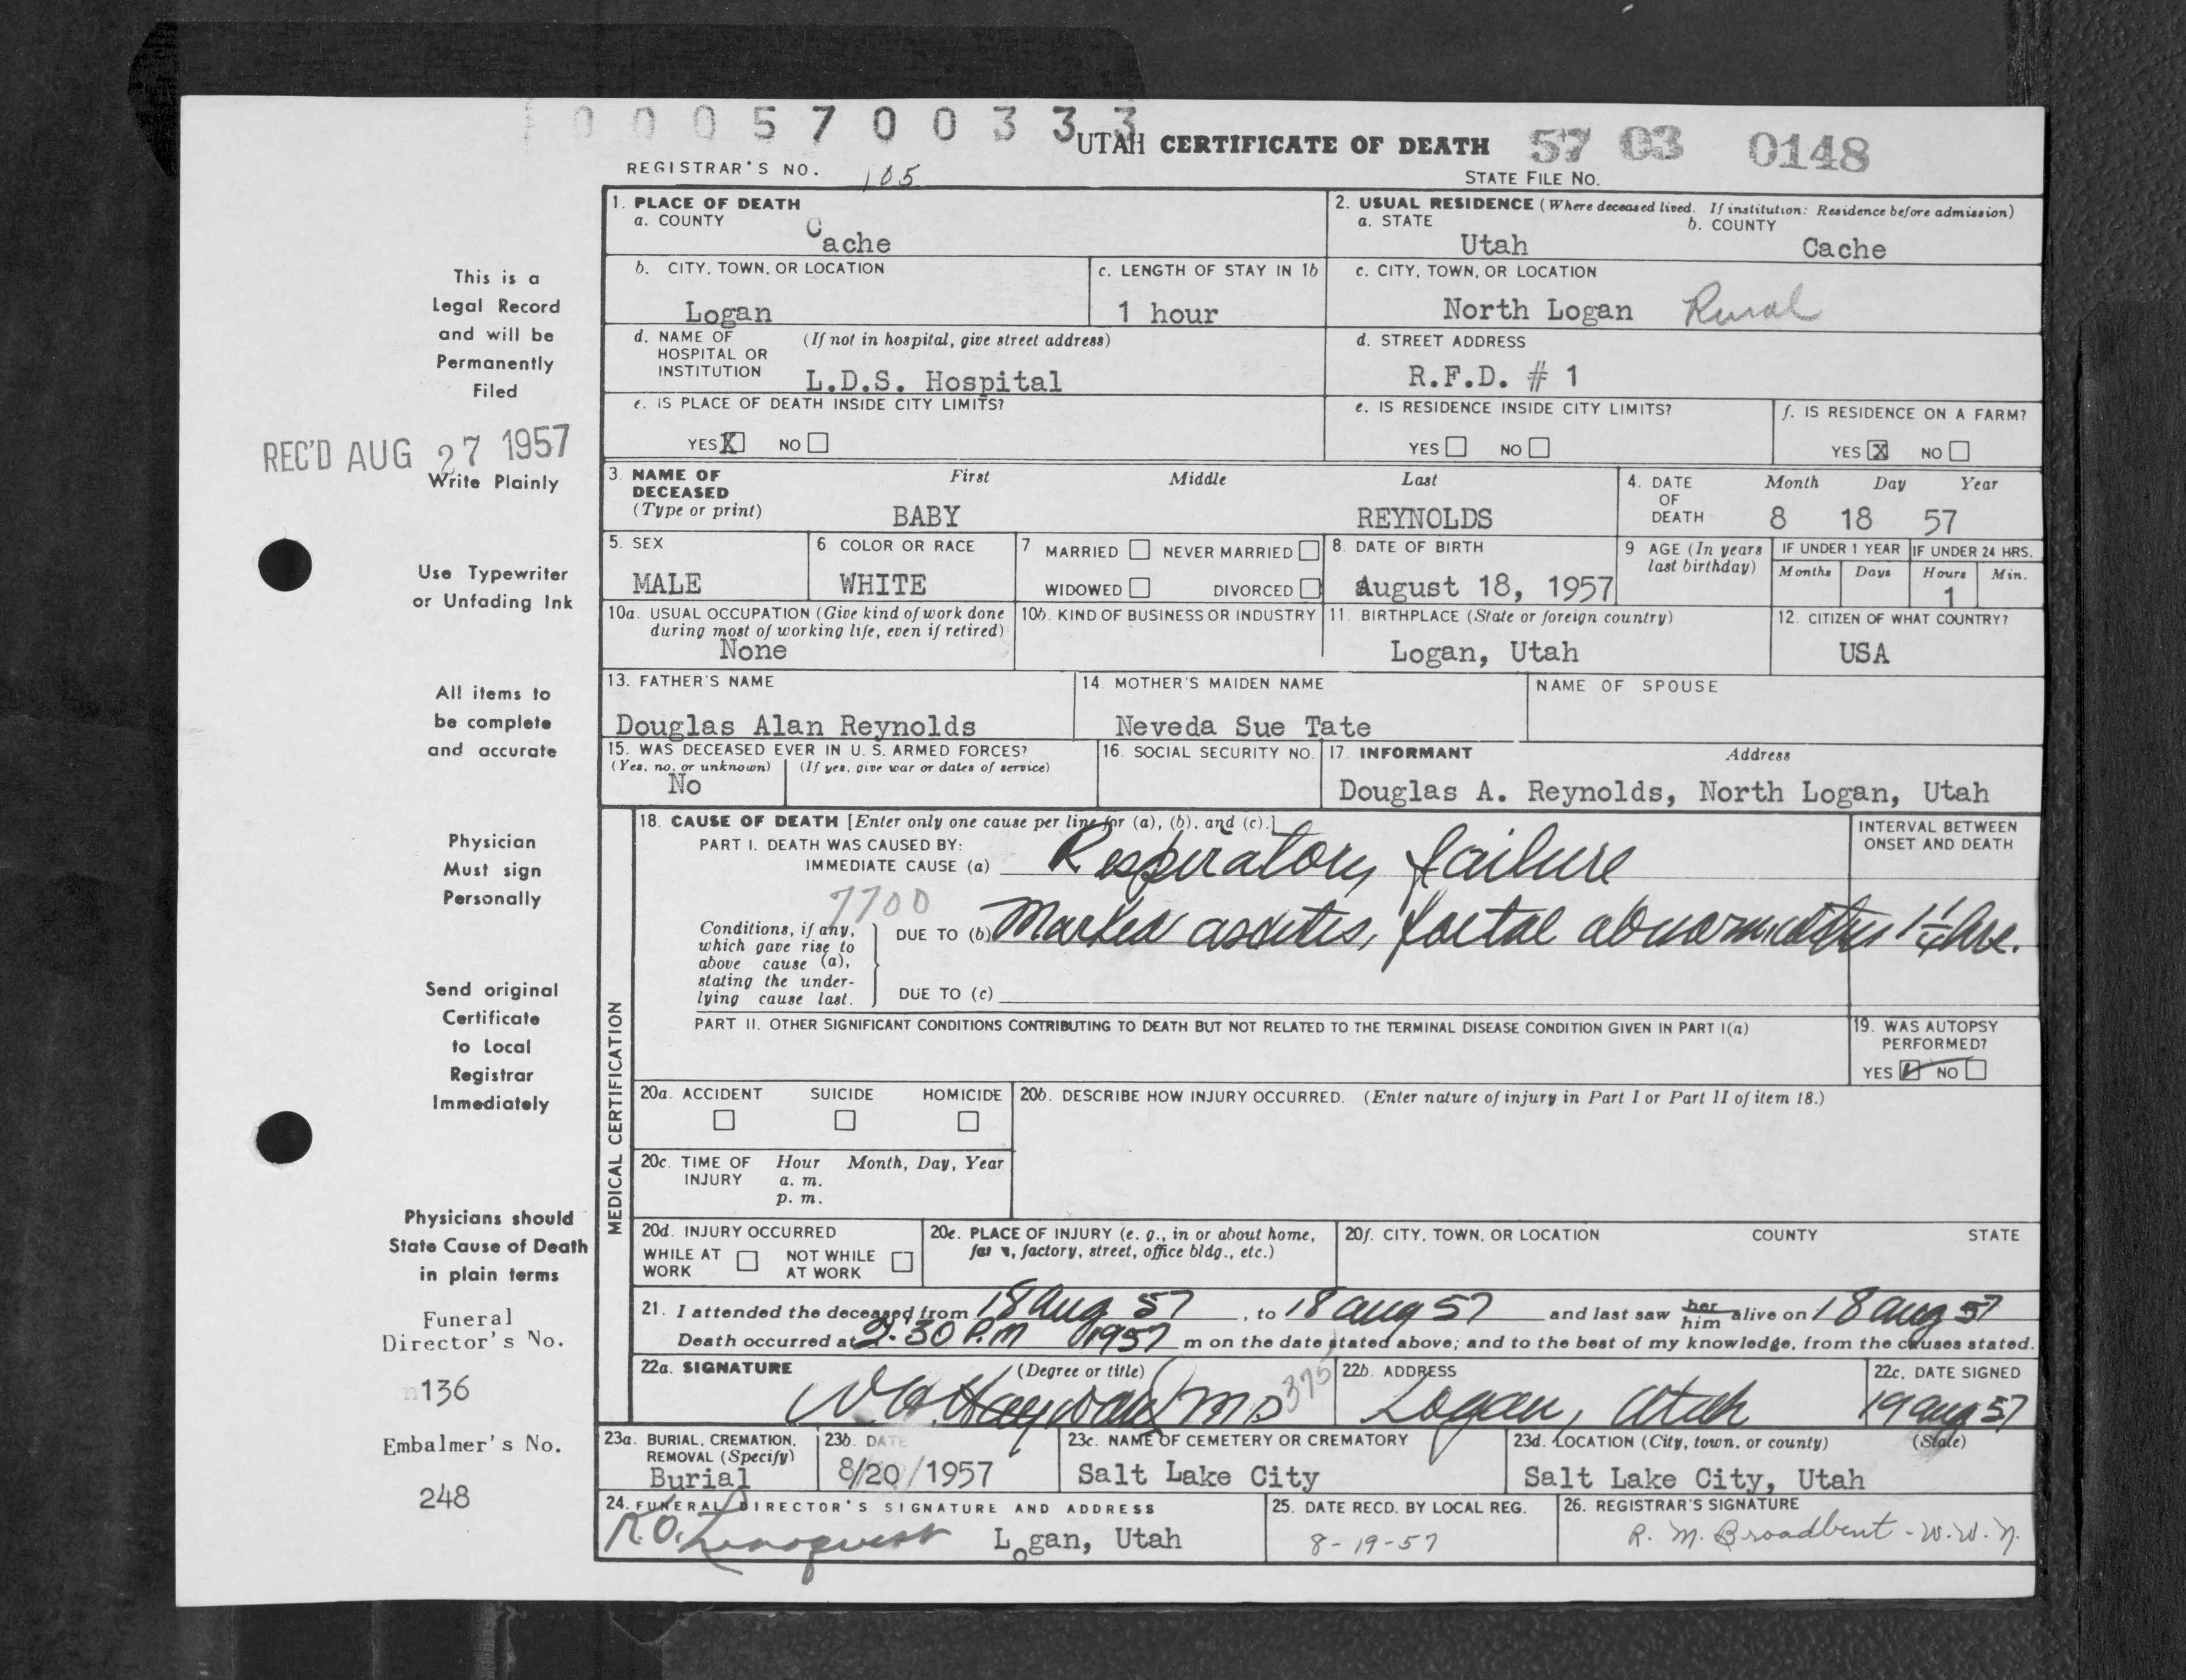 0 0 0 5 7 0 0 3 3 3
UTAH CERTIFICATE OF DEATH 57 03 0148
REGISTRAR'S NO. 105
STATE FILE NO.
1. PLACE OF DEATH
a. COUNTY
Cache
2. USUAL RESIDENCE (Where deceased lived. If institution: Residence before admission)
a. STATE b. COUNTY
Utah Cache
b. CITY, TOWN, OR LOCATION
Logan
c. LENGTH OF STAY IN 1b
1 hour
c. CITY, TOWN, OR LOCATION
North Logan Rural
d. NAME OF (If not in hospital, give street address)
HOSPITAL OR
INSTITUTION L.D.S. Hospital
d. STREET ADDRESS
R.F.D. # 1
e. IS PLACE OF DEATH INSIDE CITY LIMITS?
YES X NO
e. IS RESIDENCE INSIDE CITY LIMITS?
YES NO
f. IS RESIDENCE ON A FARM?
YES X NO
3. NAME OF First Middle Last
DECEASED
(Type or print) BABY REYNOLDS
4. DATE Month Day Year
OF
DEATH 8 18 57
5. SEX
MALE
6 COLOR OR RACE
WHITE
7 MARRIED NEVER MARRIED
WIDOWED DIVORCED
8. DATE OF BIRTH
August 18, 1957
9 AGE (In years
last birthday)
IF UNDER 1 YEAR
Months Days
IF UNDER 24 HRS.
Hours Min.
1
10a. USUAL OCCUPATION (Give kind of work done
during most of working life, even if retired)
None
10b. KIND OF BUSINESS OR INDUSTRY
11. BIRTHPLACE (State or foreign country)
Logan, Utah
12. CITIZEN OF WHAT COUNTRY?
USA
13. FATHER'S NAME
Douglas Alan Reynolds
14. MOTHER'S MAIDEN NAME
Neveda Sue Tate
NAME OF SPOUSE
15. WAS DECEASED EVER IN U. S. ARMED FORCES?
(Yes, no, or unknown) (If yes, give war or dates of service)
No
16. SOCIAL SECURITY NO.
17. INFORMANT Address
Douglas A. Reynolds, North Logan, Utah
MEDICAL CERTIFICATION
18. CAUSE OF DEATH [Enter only one cause per line for (a), (b), and (c).]
PART I. DEATH WAS CAUSED BY:
IMMEDIATE CAUSE (a) Respiratory failure
INTERVAL BETWEEN
ONSET AND DEATH
7700
Conditions, if any,
which gave rise to
above cause (a),
stating the under-
lying cause last.
DUE TO (b) Marked ascites, foetal abnormalities 1 1/4 hrs.
DUE TO (c)
PART II. OTHER SIGNIFICANT CONDITIONS CONTRIBUTING TO DEATH BUT NOT RELATED TO THE TERMINAL DISEASE CONDITION GIVEN IN PART I(a)
19. WAS AUTOPSY
PERFORMED?
YES NO
20a. ACCIDENT SUICIDE HOMICIDE
20b. DESCRIBE HOW INJURY OCCURRED. (Enter nature of injury in Part I or Part II of item 18.)
20c. TIME OF Hour Month, Day, Year
INJURY a. m.
p. m.
20d. INJURY OCCURRED
WHILE AT NOT WHILE
WORK AT WORK
20e. PLACE OF INJURY (e. g., in or about home,
farm, factory, street, office bldg., etc.)
20f. CITY, TOWN, OR LOCATION COUNTY STATE
21. I attended the deceased from 18 Aug 57, to 18 aug 57 and last saw her him alive on 18 aug 57
Death occurred at 2:30 P.M 1957 m on the date stated above; and to the best of my knowledge, from the causes stated.
22a. SIGNATURE (Degree or title)
MD 375
22b. ADDRESS
Logan, Utah
22c. DATE SIGNED
19 aug 57
23a. BURIAL, CREMATION,
REMOVAL (Specify)
Burial
23b. DATE
8/20/1957
23c. NAME OF CEMETERY OR CREMATORY
Salt Lake City
23d. LOCATION (City, town, or county) (State)
Salt Lake City, Utah
24. FUNERAL DIRECTOR'S SIGNATURE AND ADDRESS
Logan, Utah
25. DATE RECD. BY LOCAL REG.
8-19-57
26. REGISTRAR'S SIGNATURE
R. M. Broadbent - W.W.N.
This is a
Legal Record
and will be
Permanently
Filed
REC'D AUG 27 1957
Write Plainly
Use Typewriter
or Unfading Ink
All items to
be complete
and accurate
Physician
Must sign
Personally
Send original
Certificate
to Local
Registrar
Immediately
Physicians should
State Cause of Death
in plain terms
Funeral
Director's No.
136
Embalmer's No.
248